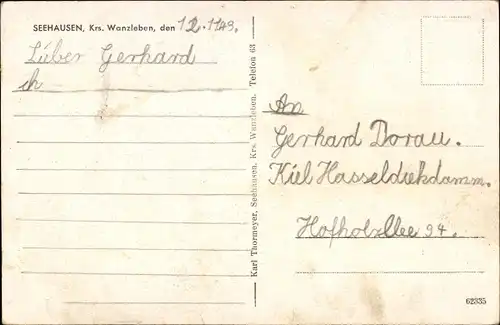 SEEHAUSEN, Krs. Wanzleben, den 12.1143.
Lüber Gerhard
ch
Karl Thormeyer, Seehausen, Krs. Wanzleben. Telefon 63
An
Gerhard Dorau.
Kiel Hasseldiekdamm.
Hofholzllee 94.
62335